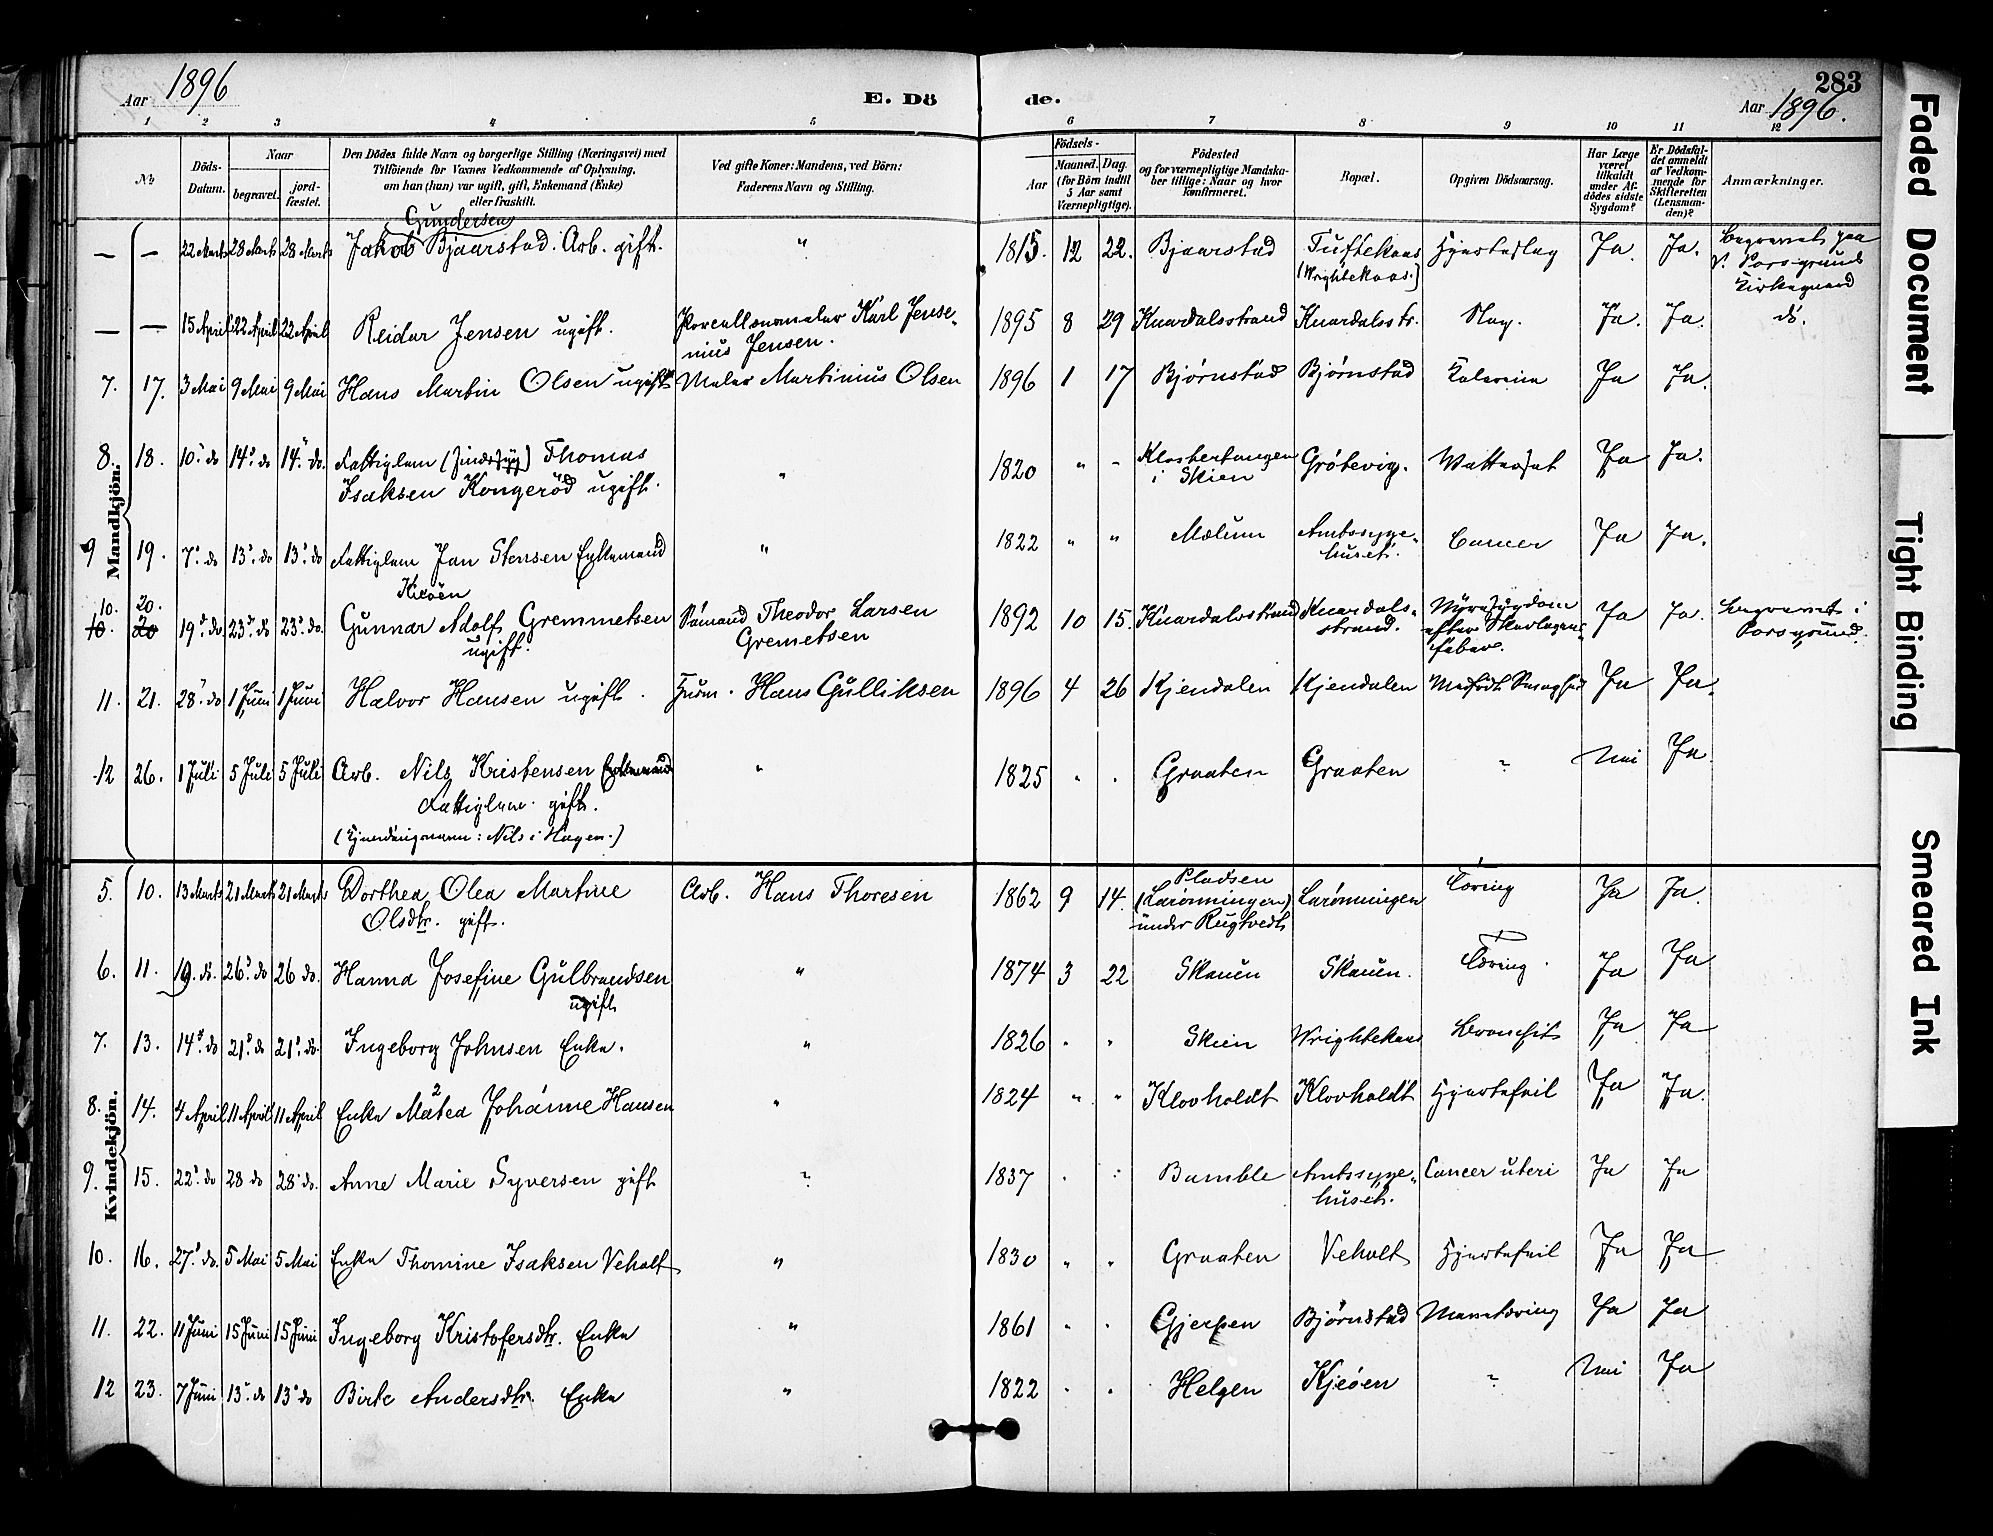 Aar 1896
E. Dö
de.
283
Aar 1896.
1 2 3 4 5 6 7 8 9 10 11 12
No
Döds-Datum.
Naar
begravet.
jord-fæstet.
Den Dödes fulde Navn og borgerlige Stilling (Næringsvei) med
Tilföiende for Voxnes Vedkommende af Oplysning,
om han (hun) var ugift, gift, Enkemand (Enke)
eller fraskilt.
Ved gifte Koner: Mandens, ved Börn:
Faderens Navn og Stilling.
Födsels-
Aar
Maaned.
Dag
(for Börn indtil
5 Aar samt
Værnepligtige).
Födested
og for værnepligtige Mandska-
ber tillige: Naar og hvor
konfirmeret.
Bopæl.
Opgiven Dödsaarsag.
Har Læge
været
tilkaldt
under Af-
dödes sidste
Sygdom?
Er Dödsfal-
det anmeldt
af Vedkom-
mende for
Skifteretten
(Lensman-
den)?
Anmærkninger.
Mandkjön.
Gundersen
— — 22 Marts 28 Marts 28 Marts Jakob Bjaarstad. Arb. gift. " 1815. 12 22. Bjaarstad Tuftekaas Hjerteslag Ja. Ja. begravet paa
(Wrightekaas.) V. Porsgrunds
Kirkegaard
— — 15 April 22 April 22 April Reidar Jensen ugift. Porcellænsmaler Karl Jense- 1895 8 29 Knardalsstrand Knardalsstr. Slag. Ja. Ja. do.
nius Jensen.
7. 17. 3 Mai 9 Mai 9 Mai Hans Martin Olsen ugift Maler Martinius Olsen 1896 1 17 Bjørnstad Bjørnstad Kolerine Ja Ja.
8. 18. 10. do 14. do 14. do. Fattiglem (Sindssyg) Thomas " 1820 " - Klostertangen Grøtevig. Wattersot Ja Ja.
Isaksen Kongerød ugift. i Skien
9 19. 7. do 13. do 13. do Fattiglem Jan Stensen Enkemand " 1822 " " Mælum Amtssyge- Cancer Ja Ja.
Kleøen huset.
10. 20.
10. 20 19. do 23. do 23. do. Gunnar Adolf Gremmetsen Sømand Theodor Larsen 1892 10 15. Knardalsstrand Knardals- Nyresygdom Ja Ja. begravet i
ugift. Gremetsen strand. efter Skarlagens- Porsgrund.
feber.
11. 21. 28. do 1 Juni 1 Juni Halvor Hansen ugift. Furm. Hans Gulliksen 1896 4 26 Kjendalen Kjendalen Medfødt Svaghed Ja Ja.
12 26. 1 Juli 5 Juli 5 Juli Arb. Nils Kristensen Enkemand " 1825 " . Graaten Graaten " Nei Ja
Fattiglem. gift.
(Kjendingsnavn: Nils i Hagen.)
Kvindekjön.
5. 10. 13 Marts 21 Marts 21 Marts Dorthea Olea Martine Arb. Hans Thoresen 1862 9 14. Pladsen Larønningen Tæring Ja Ja.
Olsdtr. gift. (Larønningen)
under Rugtvedt
6. 11. 19. do. 26. do 26 do. Hanna Josefine Gulbrandsen " 1874 3 22 Skauen Skauen. Tæring. Ja Ja
ugift
7. 13. 14. do 21. do 21. do. Ingeborg Johnsen Enke. " 1826 . " Skien Wrightekaas Bronchit Ja Ja
8. 14. 4 April 11 April 11 April Enke Matea Johanne Hansen " 1824 " " Klovholdt Klovholdt Hjertefeil Ja Ja.
9. 15. 22. do 28 do 28 do. Anne Marie Syversen gift " 1837 . : Bamble Amtssyge- Cancer uteri Ja Ja
huset.
10. 16. 27. do. 5 Mai 5 Mai Enke Thomine Isaksen Veholt " 1830 " " Graaten Veholt Hjertefeil Ja Ja
11. 22. 11 Juni 15 Juni 15 Juni Ingeborg Kristofersdtr. Enke " 1861 " . Gjerpen Bjørnstad Mavetæring Ja Ja
12 23. 7 Juni 13. do 13. do Birte Andersdtr. Enke " 1822 . . Helgen Kjeøen " Nei Ja
Faded Document
Tight Binding
Smeared Ink